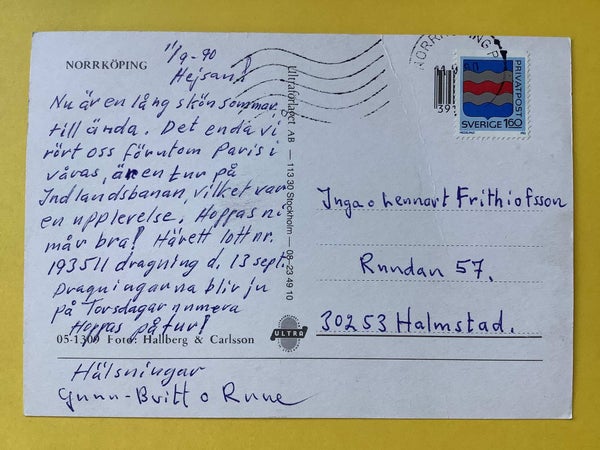 NORRKÖPING
11/9-90
Hejsan!
Nu är en lång skön sommar
till ända. Det enda vi
rört oss förutom Paris i
våras, är en tur på
Indlandsbanan, vilket var
en upplevelse. Hoppas ni
mår bra! Här ett lott nr.
193511 dragning d. 13 sept.
Dragningarna blir ju
på Torsdagar numera
Hoppas på tur!
05-1309 Foto: Hallberg & Carlsson
Hälsningar
Gunn-Britt o Rune
Ultraförlaget AB — 113 30 Stockholm — 08-23 49 10
ULTRA
NORRKÖPING
PRIVATPOST
SVERIGE 160
Inga o Lennart Frithiofsson
Rundan 57.
30253 Halmstad.